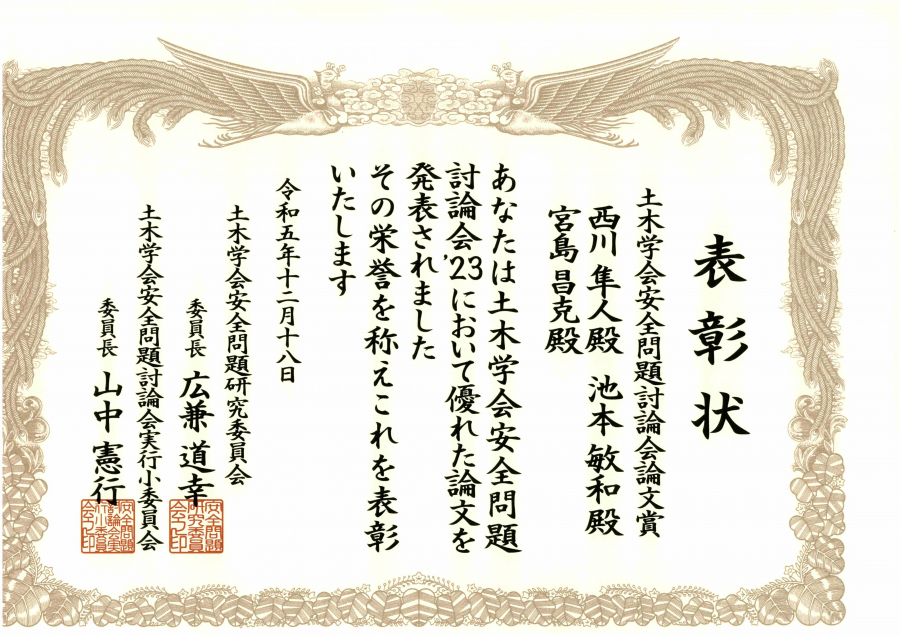 表彰状
土木学会安全問題討論会論文賞
西川 隼人殿 池本 敏和殿
宮島 昌克殿
あなたは土木学会安全問題
討論会'23において優れた論文を
発表されました
その栄誉を称えこれを表彰
いたします
令和五年十二月十八日
土木学会安全問題研究委員会
委員長 広兼 道幸
土木学会安全問題討論会実行小委員会
委員長 山中 憲行
安全問題
研究委員
会之印
安全問題
討論会実
行小委員
会之印